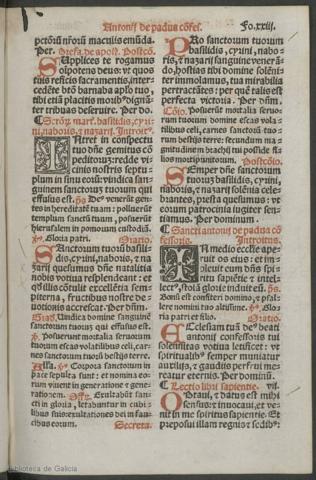 Antonij de padua cõfes. Fo.xxiij.
pctorũ nr̃orum maculis emũda.
Per. Orefa. de apost. Postcõ.
Supplices te rogamus
oĩpotens deus: vt quos
tuis reficis sacramentis, inter-
cedẽte btõ barnaba apl̃o tuo,
tibi etiã placitis moribꝰ dignã-
ter tribuas deseruire. Per do.
nī, naboris, et nazarij. Introitꝰ.
Intret in conspectu
tuo dñe gemitus cõ
peditoruꝫ: redde vi-
cinis nostris septu-
plum in sinu eoruꝫ: vindica san-
guinem sanctoruꝫ tuorum qui
effusus est. ps̃ Deꝰ venerũt gen-
tes in hereditatẽ tuam: polluerũt
templum sanctũ tuum, posuerũt
hierusalem in pomorum custodiã.
Gloria patri. Oratio.
Sanctorum tuorũ basili-
dis, cyrini, naboris, et na-
zarij quesumus dñe natalitia
nobis votiua resplendeant: et
qd̃ illis cõtulit excellẽtia sempi-
terna, fructibus nostre de-
uotionis accrescat. Per dñm.
Vindica domine sanguinẽ
sanctorum tuorum qui effusus est.
Posuerunt mortalia seruorum
tuorum escas volatilibus celi, car-
nes sanctorum tuoꝝ bestijs terre.
Alla. Corpora sanctorum in
pace sepulta sunt: et nomina eo-
rum viuent in generatione et gene-
rationem. Exultabũt san-
cti in gloria, letabuntur in cubi-
libus suis: exultationes dei in fau-
cibus eorum. Secreta.
Pro sanctorum tuorum
basilidis, cyrini, nabo-
ris, et nazarij sanguine venerã-
do, hostias tibi domine solẽni-
ter immolamus, tua mirabilia
pertractãtes: per quẽ talis est
perfecta victoria. Per dñm.
Cõio. Posuerũt mortalia seruo-
rum tuorum domine escas vola-
tilibus celi, carnes sanctorũ tuo-
rum bestijs terre: secundum ma-
gnitudinem brachij tui posside fi-
lios mortipunitorum. Postcõio.
Semper dñe sanctorum
tuoruꝫ basilidis, cyrini,
naboris, et nazarij solẽnia cele-
brantes, presta quesumus: vt
eorum patrocinia iugiter sen-
tiamus. Per dominum.
Sancti antonij de padua cõ
fessoris. Introitus.
In medio ecclie ape-
ruit os eius: et im-
pleuit eum dñs spi-
ritu sapiẽtie et intel-
lectꝰ, stolã glorie induit eũ. ps̃
Bonũ est confiteri domino, et psal-
lere nomini tuo altissime. Glo-
ria patri et filio. Oratio.
Ecclesiam tuã deꝰ beati
antonij confessoris tui
solennitas votiua letificet: vt
spiritualibꝰ semper muniatur
auxilijs, et gaudijs perfrui me-
reatur eternis. Per dominũ.
Lectio libri sapientie. vij.
Optaui, et datus est mihi
sensus: et inuocaui, et ve-
nit in me spiritus sapientie. Et
preposui illam regnis et sedibꝰ:
Biblioteca de Galicia